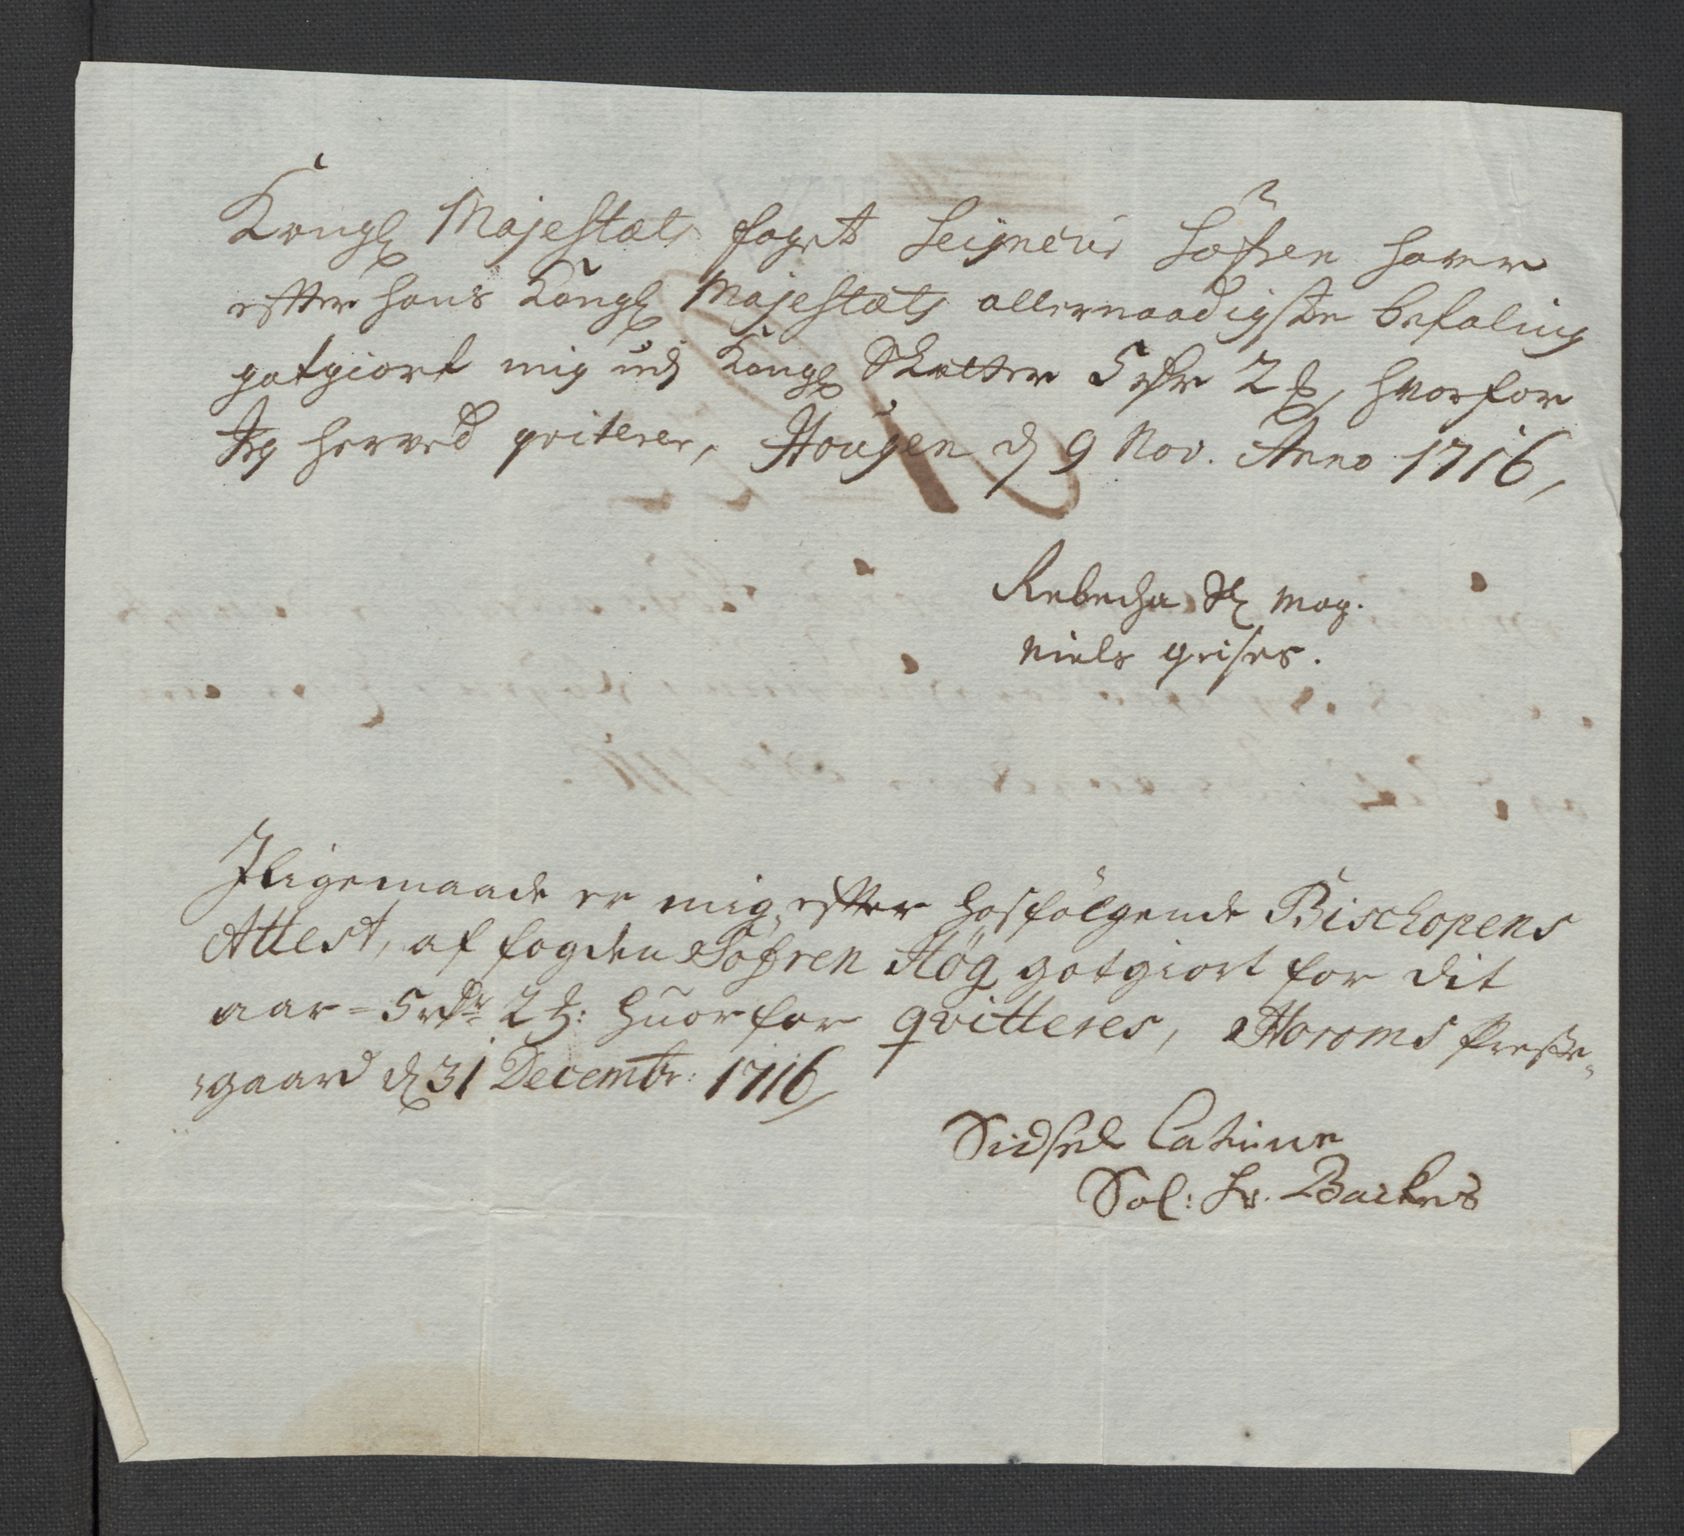 Kongl Majestæts foget Seigneur Søfren haver
effter hans Kongl Majestæts allernaadigste befaling
gotgiort mig udj Kongl Skatter 5 rdr 2 ʒ, hvorfor
Jeg herved qviterer, Hougen d 9 Nov. Anno 1716,
Rebecha Sl Mag.
Niels Grises.
Jligemaade er mig effter hosfølgende Bischopens
Attest, af fogden Søfren Høg gotgiort for dit
aar = 5 rdr 2 ʒ: huorfor qvitteres, Haroms Preste-
gaard d 31 Decembr: 1716,
Sidsel Catrine
Sal: Hr. Backes